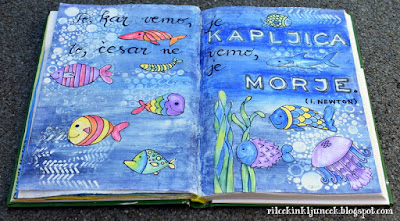 To, kar vemo, je
KAPLJICA
to, česar ne vemo,
je
MORJE.
(I. NEWTON)
rilcekinkljuncek.blogspot.com